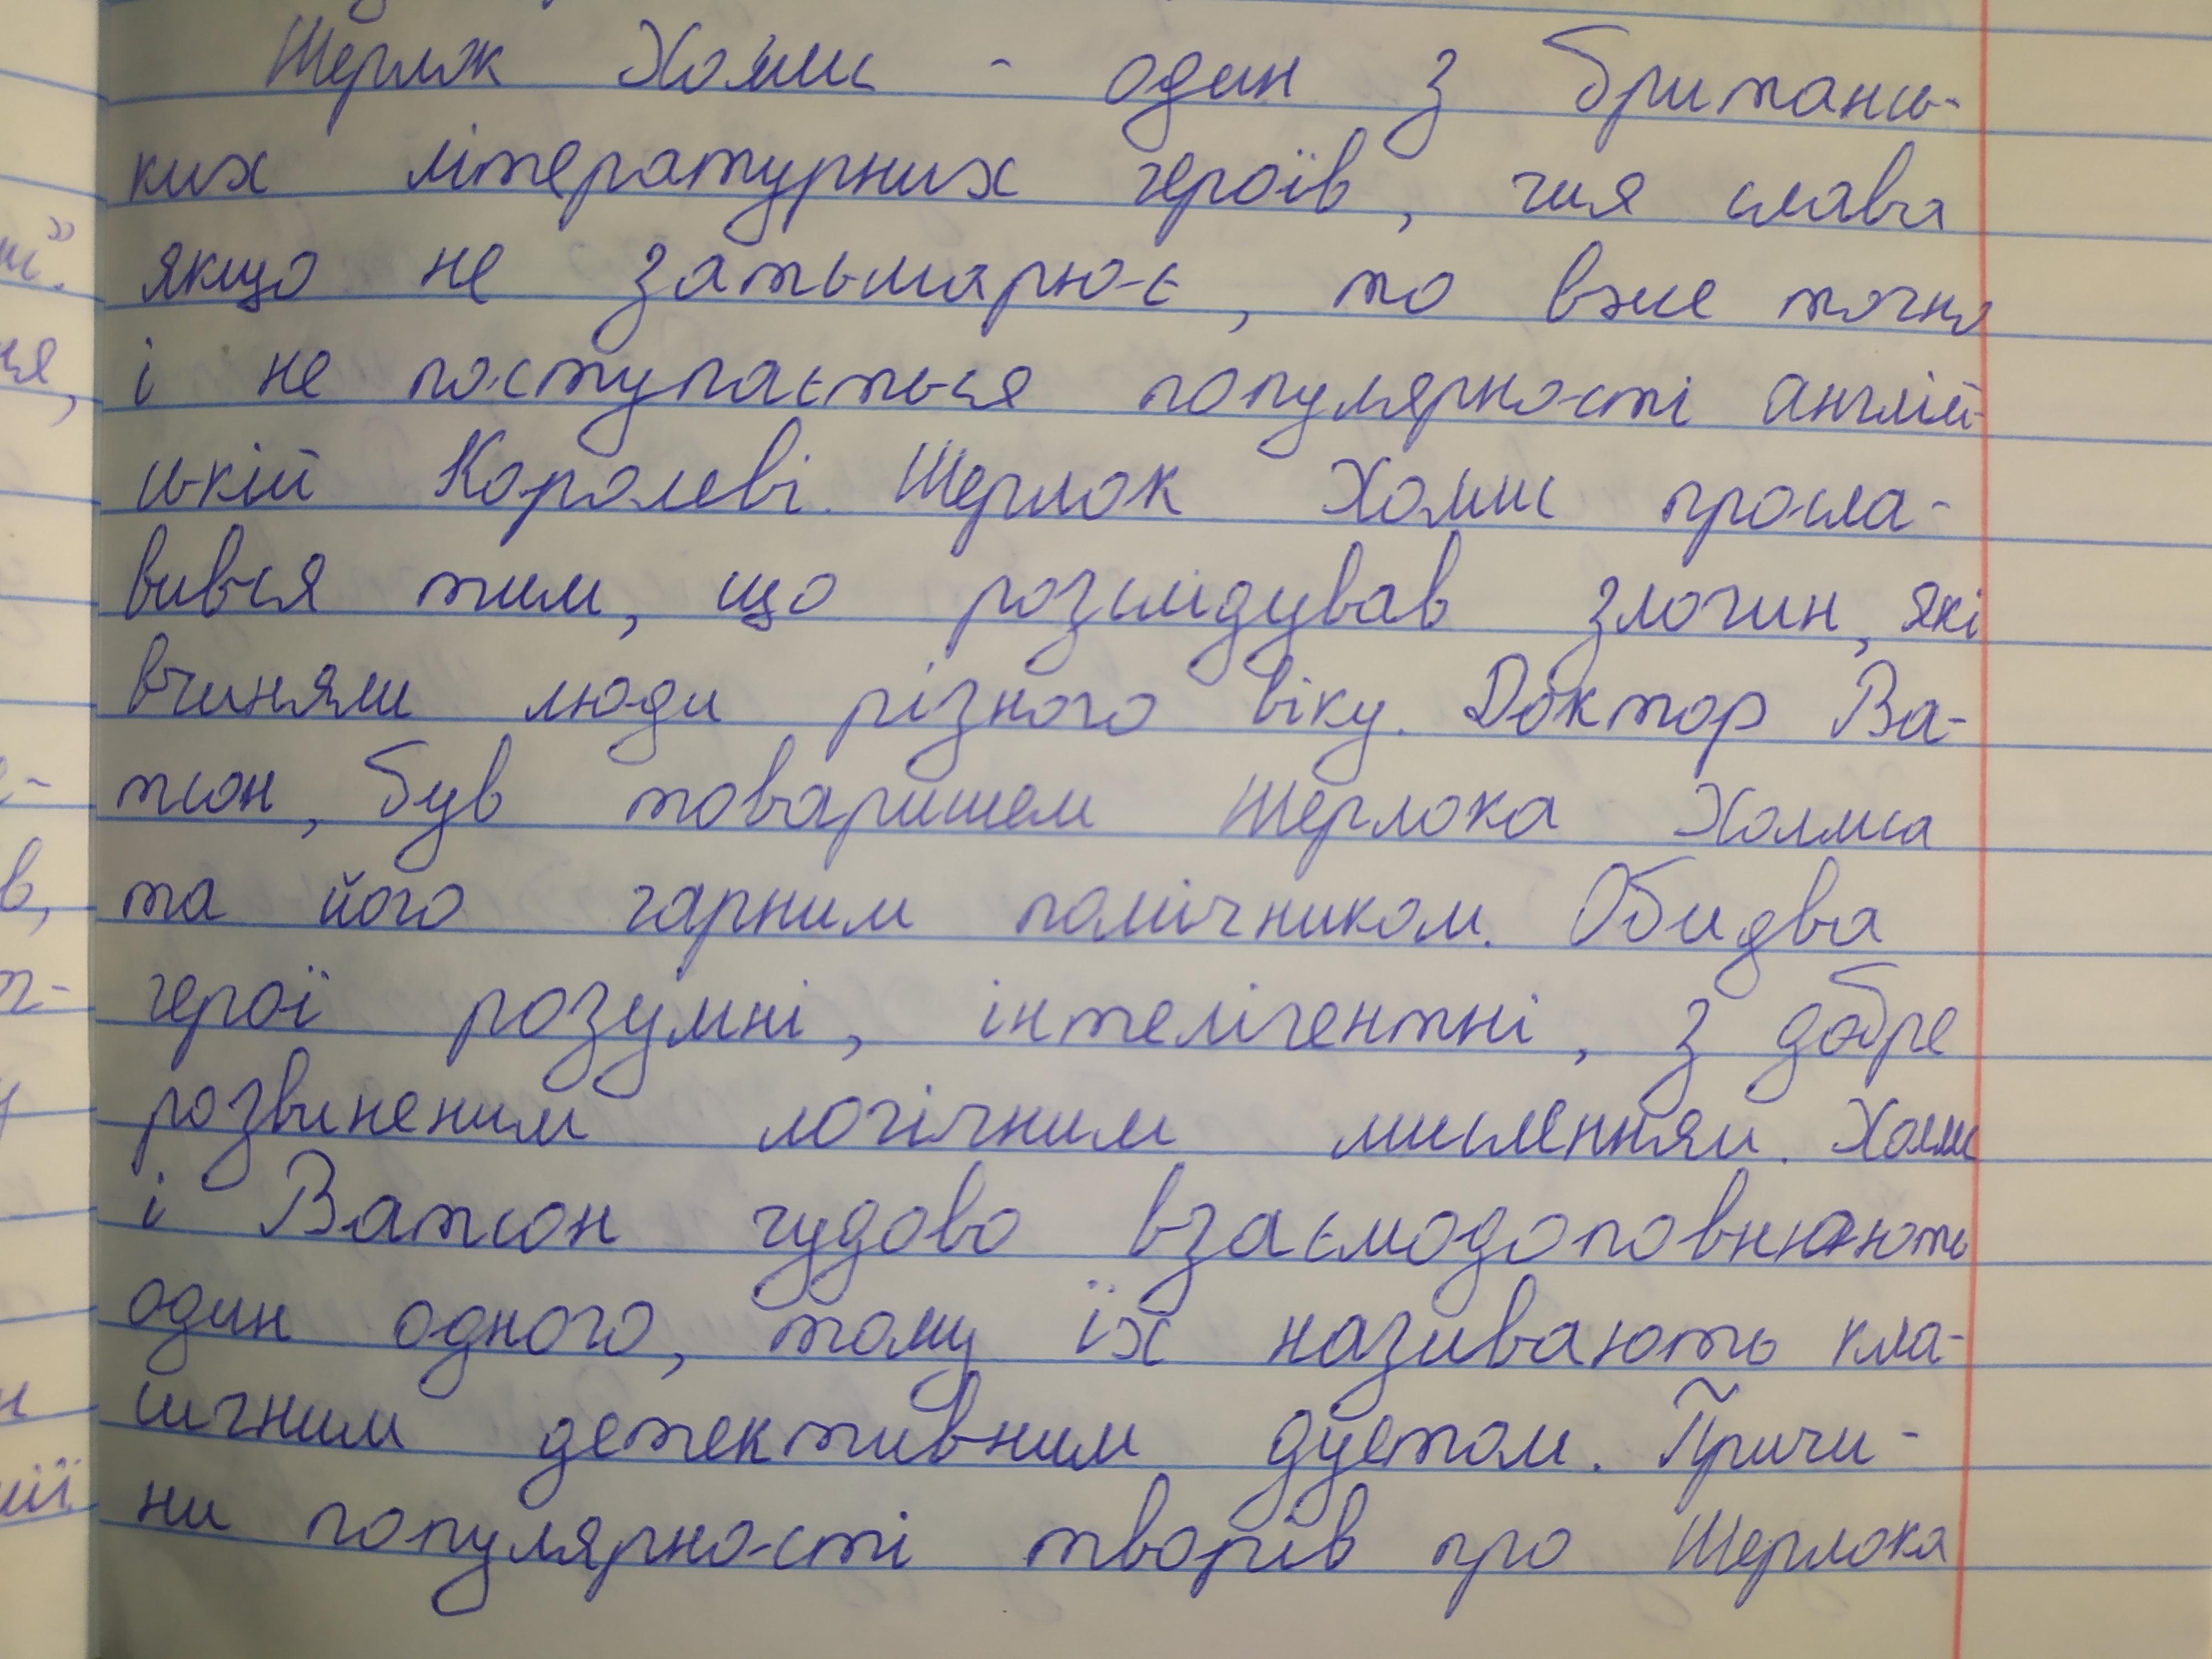 Шерлок Холмс - один з британсь-
ких літературних героїв, чия слава
якщо не затьмарює, то вже точно
і не поступається популярності англій-
ській Королеві. Шерлок Холмс просла-
вився тим, що розслідував злочин, які
вчиняли люди різного віку. Доктор Ва-
тсон, був товаришем Шерлока Холмса
та його гарним помічником. Обидва
герої розумні, інтелігентні, з добре
розвиненим логічним мисленням. Холмс
і Ватсон чудово взаємодоповнюють
один одного, тому їх називають кла-
сичним детективним дуетом. Причи-
ни популярності творів про Шерлока